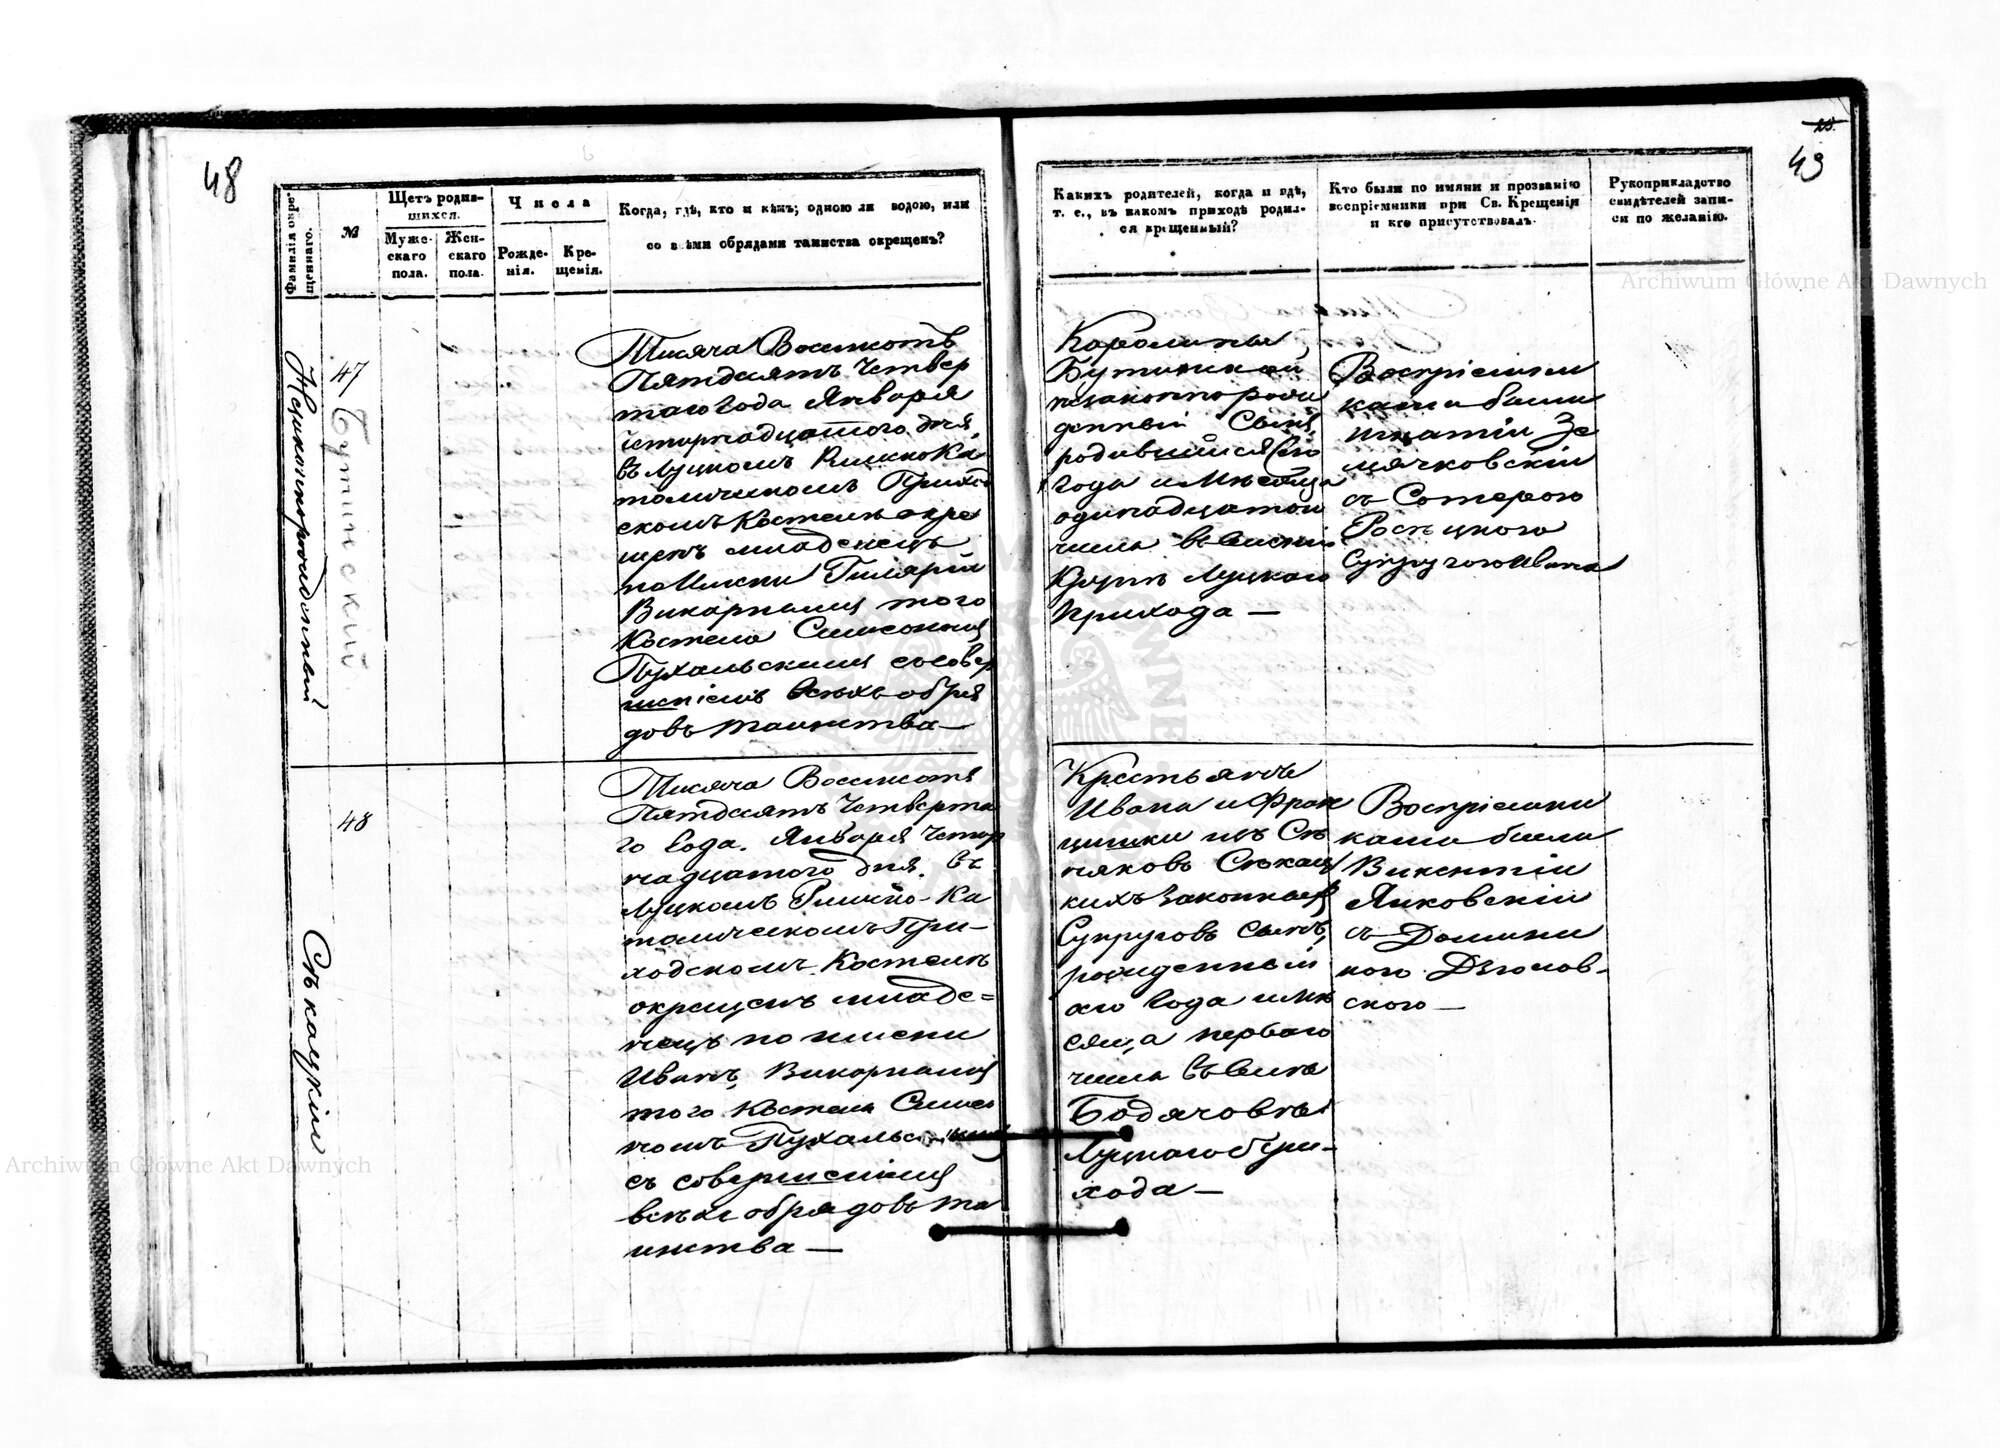 48
Фамилія окре-
щеннаго.
№
Щетъ родив-
шихся.
Муже-
скаго
пола.
Жен-
скаго
пола.
Числа
Рожде-
нія.
Кре-
щенія.
Когда, гдѣ, кто и кѣмъ; одною ли водою, или
со всѣми обрядами таинства окрещенъ?
Незаконнорожденный
47
Бутинскій
Тысяча Восемсотъ
Пятдесятъ Четвер
таго Года Января
четырнадцатого дня,
въ Луцкомъ Римско Ка
толическомъ Приход
скомъ Костелѣ окре
щенъ младенецъ
по Имени Гилярій
Викарналиц того
Костела Симеономъ
Пухальскимъ со совер
шеніемъ всѣхъ обря
довъ таинства —
48
Сѣкацкій
Тысяча Восемсотъ
Пятдесятъ Четверта
го Года. Января Четыр
надцатого дня. въ
Луцкомъ Римско-Ка
толическомъ При-
ходскомъ Костелѣ
окрещенъ младе=
нецъ по имени
Иванъ,
того Костела Симео
номъ Пухальскимъ
съ совершеніемъ
всѣхъ обрядовъ та
инства —
49
Какихъ родителей, когда и гдѣ,
т. е., въ какомъ приходѣ родил-
ся крещенный?
Кто были по имяни и прозванію
воспріемники при Св. Крещеніи
и кто присутствовалъ.
Рукоприкладство
свидѣтелей запи-
си по желанію.
Каролины
Бутинской
незаконнорож
денный Сынъ,
родившійся Сего
года и Мѣсяца
одинадцатого
числа
Луцкого
Прихода —
Воспріемни
ками были
Игнатій Зе
мячковскій
съ
Супругою Ивана
Крестьянъ
Ивана и Фран
цишки изъ Сѣ
няковъ Сѣкац
кихъ Законныхъ
Супруговъ Сынъ,
рожденный
сего Года и Мѣ
сяца первого
числа въ Селѣ
Бодячовкѣ
Луцкого При-
хода —
Воспріемни
ками были
Викентій
Янковскій
съ Домини
кою
ского —
Archiwum Główne Akt Dawnych
Archiwum Główne Akt Dawnych